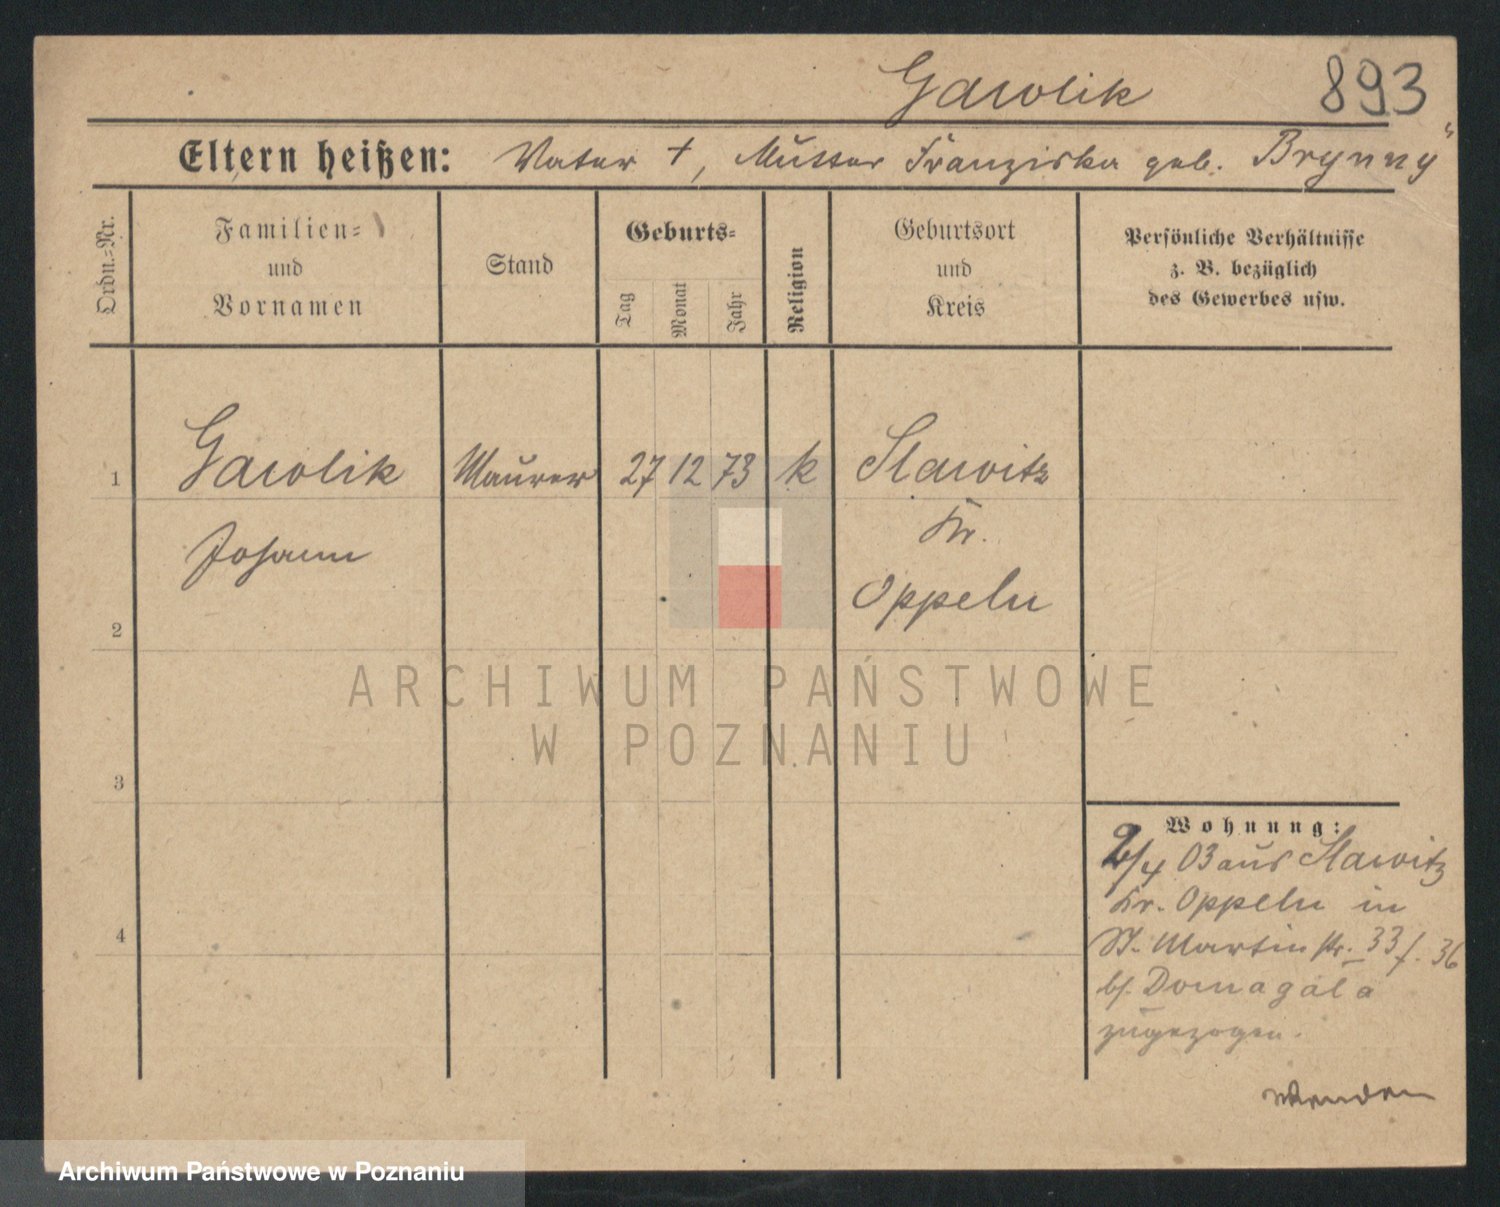 Gawlik
893
Eltern heißen: Vater +, Mutter Franziska geb. Brynny
Ordn.-Nr.
Familien-
und
Vornamen
Stand
Geburts-
Tag
Monat
Jahr
Religion
Geburtsort
und
Kreis
Persönliche Verhältnisse
z. B. bezüglich
des Gewerbes usw.
1 Gawlik Maurer 27 12 73 k Slawitz
Johann Kr.
Oppeln
2
3
4
Wohnung:
/4 03 aus Slawitz
Kr. Oppeln in
St. Martinstr. 33 36
bf. Domagala
zugezogen.
wenden
ARCHIWUM PAŃSTWOWE
W POZNANIU
Archiwum Państwowe w Poznaniu